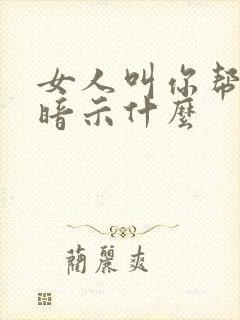 女人叫你帮
暗示什麼
蘭麗爽